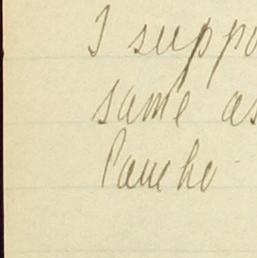 I suppo
same as
Pancho -